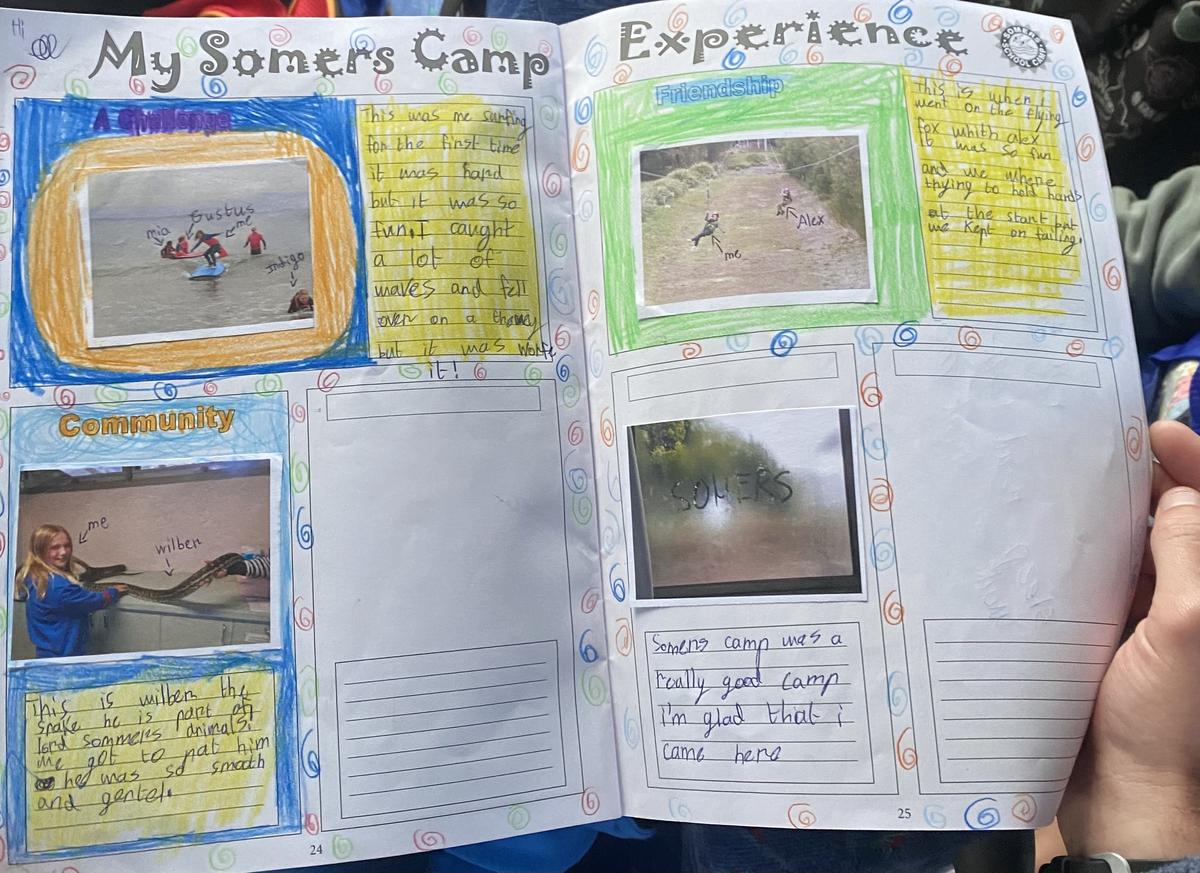 Hi
My Somers Camp Experience
SOMERS
SCHOOL CAMP
A Challenge
mia
Gustus
me
Indigo
This was me surfing
for the first time
it was hard
but it was so
fun. I caught
a lot of
waves and fell
over on a
but it was
it!
Community
me
wilber
This is wilber the
snake he is part of
lord sommers animals.
we got to pat him
he was so smooth
and gentel.
24
Friendship
me
Alex
This is when i
went on the flying
fox whith alex
it was so fun
and we where
trying to hold hands
at the start but
we kept on failing.
SOMERS
Somers camp was a
really good camp
i'm glad that i
came here
25